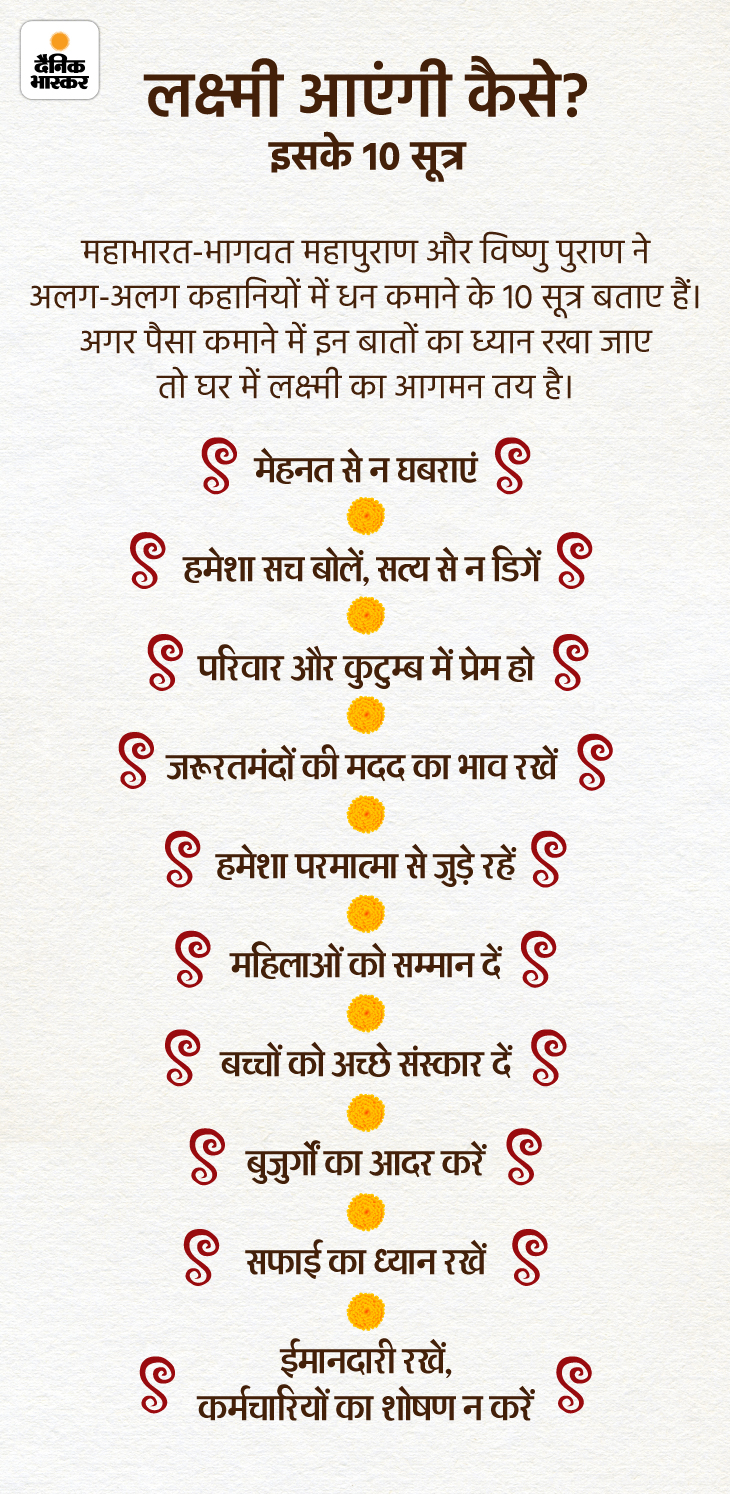 दैनिक
भास्कर
लक्ष्मी आएंगी कैसे?
इसके 10 सूत्र
महाभारत-भागवत महापुराण और विष्णु पुराण ने
अलग-अलग कहानियों में धन कमाने के 10 सूत्र बताए हैं।
अगर पैसा कमाने में इन बातों का ध्यान रखा जाए
तो घर में लक्ष्मी का आगमन तय है।
मेहनत से न घबराएं
हमेशा सच बोलें, सत्य से न डिगें
परिवार और कुटुम्ब में प्रेम हो
जरूरतमंदों की मदद का भाव रखें
हमेशा परमात्मा से जुड़े रहें
महिलाओं को सम्मान दें
बच्चों को अच्छे संस्कार दें
बुजुर्गों का आदर करें
सफाई का ध्यान रखें
ईमानदारी रखें,
कर्मचारियों का शोषण न करें